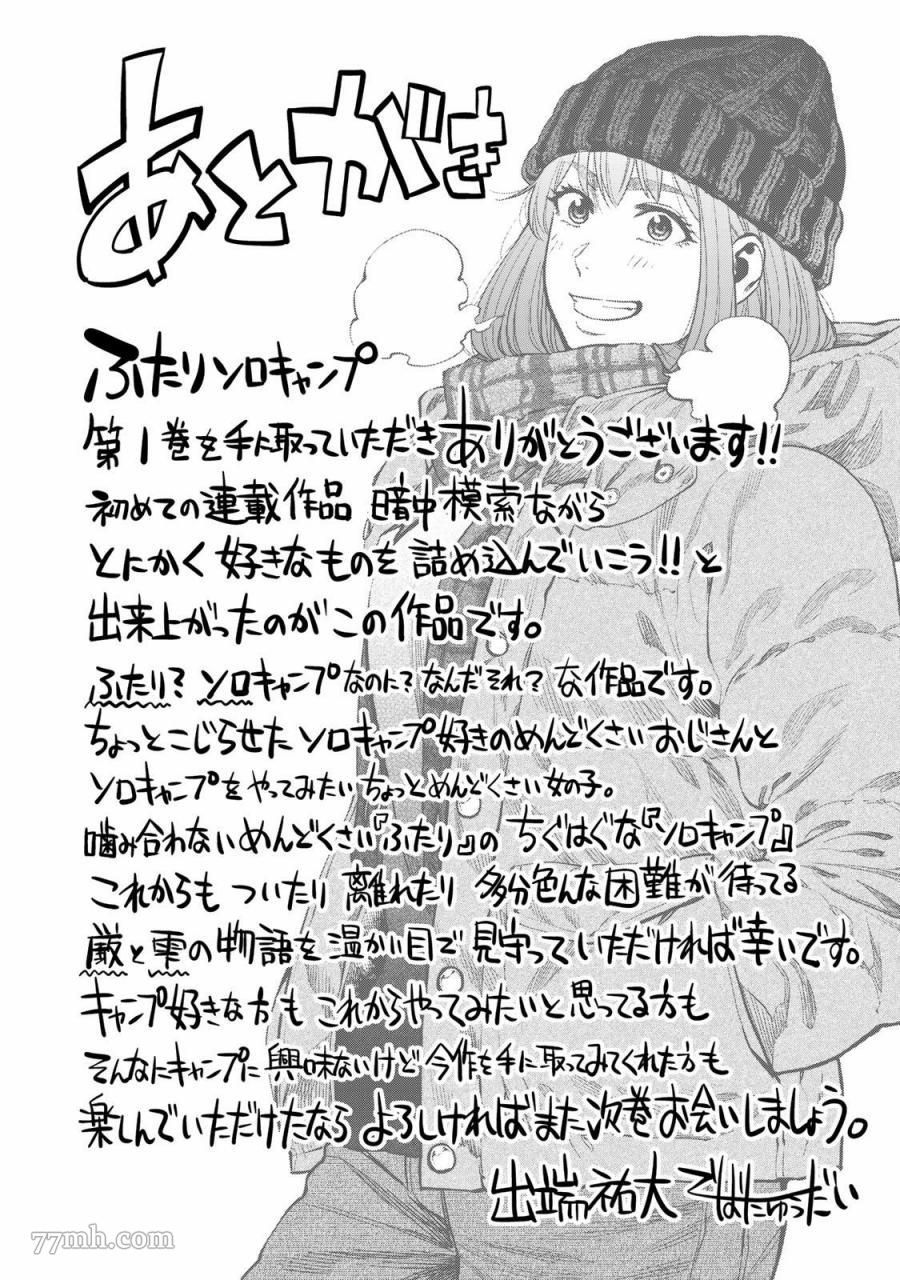 あとがき
ふたりソロキャンプ
第1巻を手に取っていただきありがとうございます!!
初めての連載作品 暗中模索ながら
とにかく好きなものを詰め込んでいこう!!と
出来上がったのがこの作品です。
ふたり?ソロキャンプなのに?なんだそれ?な作品です。
ちょっとこじらせたソロキャンプ好きのめんどくさいおじさんと
ソロキャンプをやってみたいちょっとめんどくさい女の子。
噛み合わないめんどくさい『ふたり』のちぐはぐな『ソロキャンプ』
これからもついたり離れたり多分色んな困難が待ってる
厳と雫の物語を温かい目で見守っていただければ幸いです。
キャンプ好きな方もこれからやってみたいと思ってる方も
そんなにキャンプに興味ないけど今作を手に取ってみてくれた方も
楽しんでいただけたならよろしければまた次巻お会いしましょう。
出端祐大 ではたゆうだい
77mh.com